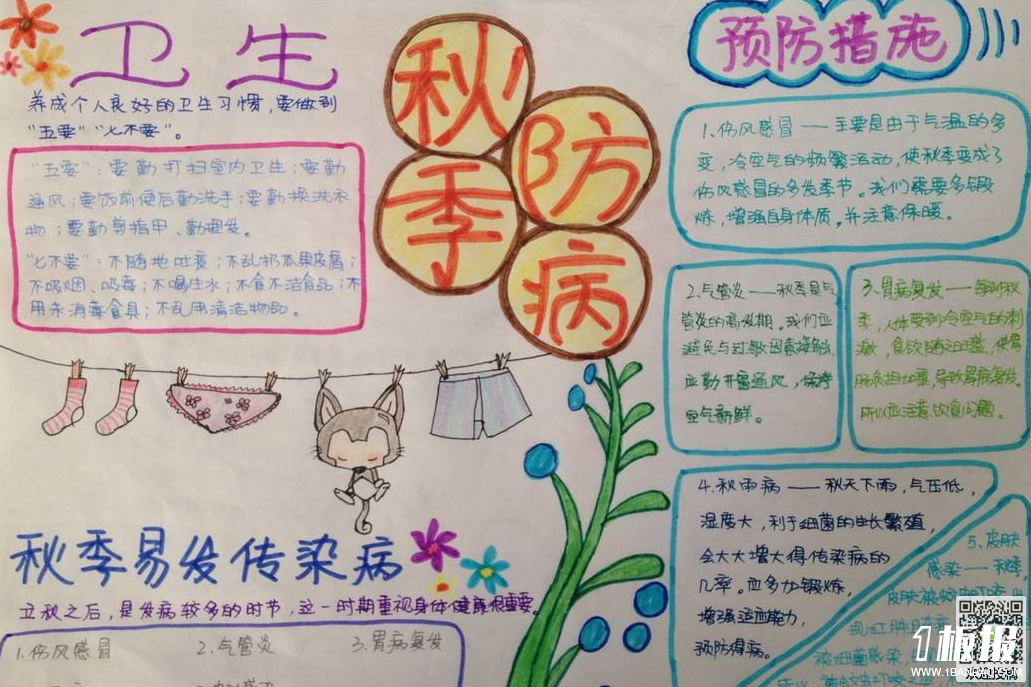 卫生
养成个人良好的卫生习惯,要做到
“五要”“七不要”。
“五要”：要勤打扫室内卫生；要勤
通风；要饭前便后勤洗手；要勤换洗衣
物；要勤剪指甲、勤理发。
“七不要”：不随地吐痰；不乱扔瓜果皮屑；
不吸烟、吸毒；不喝生水；不食不洁食品；不
用未消毒食具；不乱用清洁物品。
秋季防病
预防措施
1.伤风感冒——主要是由于气温的多
变,冷空气的频繁活动,使秋季变成了
伤风感冒的多发季节。我们需要多锻
炼,增强自身体质。并注意保暖。
2.气管炎——秋季是气
管炎的高发期。我们应
避免与过敏因素接触,
应勤开窗通风,保持
空气新鲜。
3.胃病复发——每到秋
季,人体受到冷空气的刺
激,食欲随之旺盛,使胃
肠负担加重,导致胃病复发。
所以应注意饮食问题。
4.秋雨病——秋天下雨,气压低,
湿度大,利于细菌的生长繁殖,
会大大增大得传染病的
几率。应多加锻炼,
增强适应能力,
预防得病。
5.皮肤
感染——秋季,
皮肤被蚊虫叮咬
现红肿
滚细菌感染
秋季易发传染病
立秋之后,是发病较多的时节,这一时期重视身体健康很重要。
1.伤风感冒 2.气管炎 3.胃病复发
1板报
WWW.1BANBAO.COM
欢迎投稿